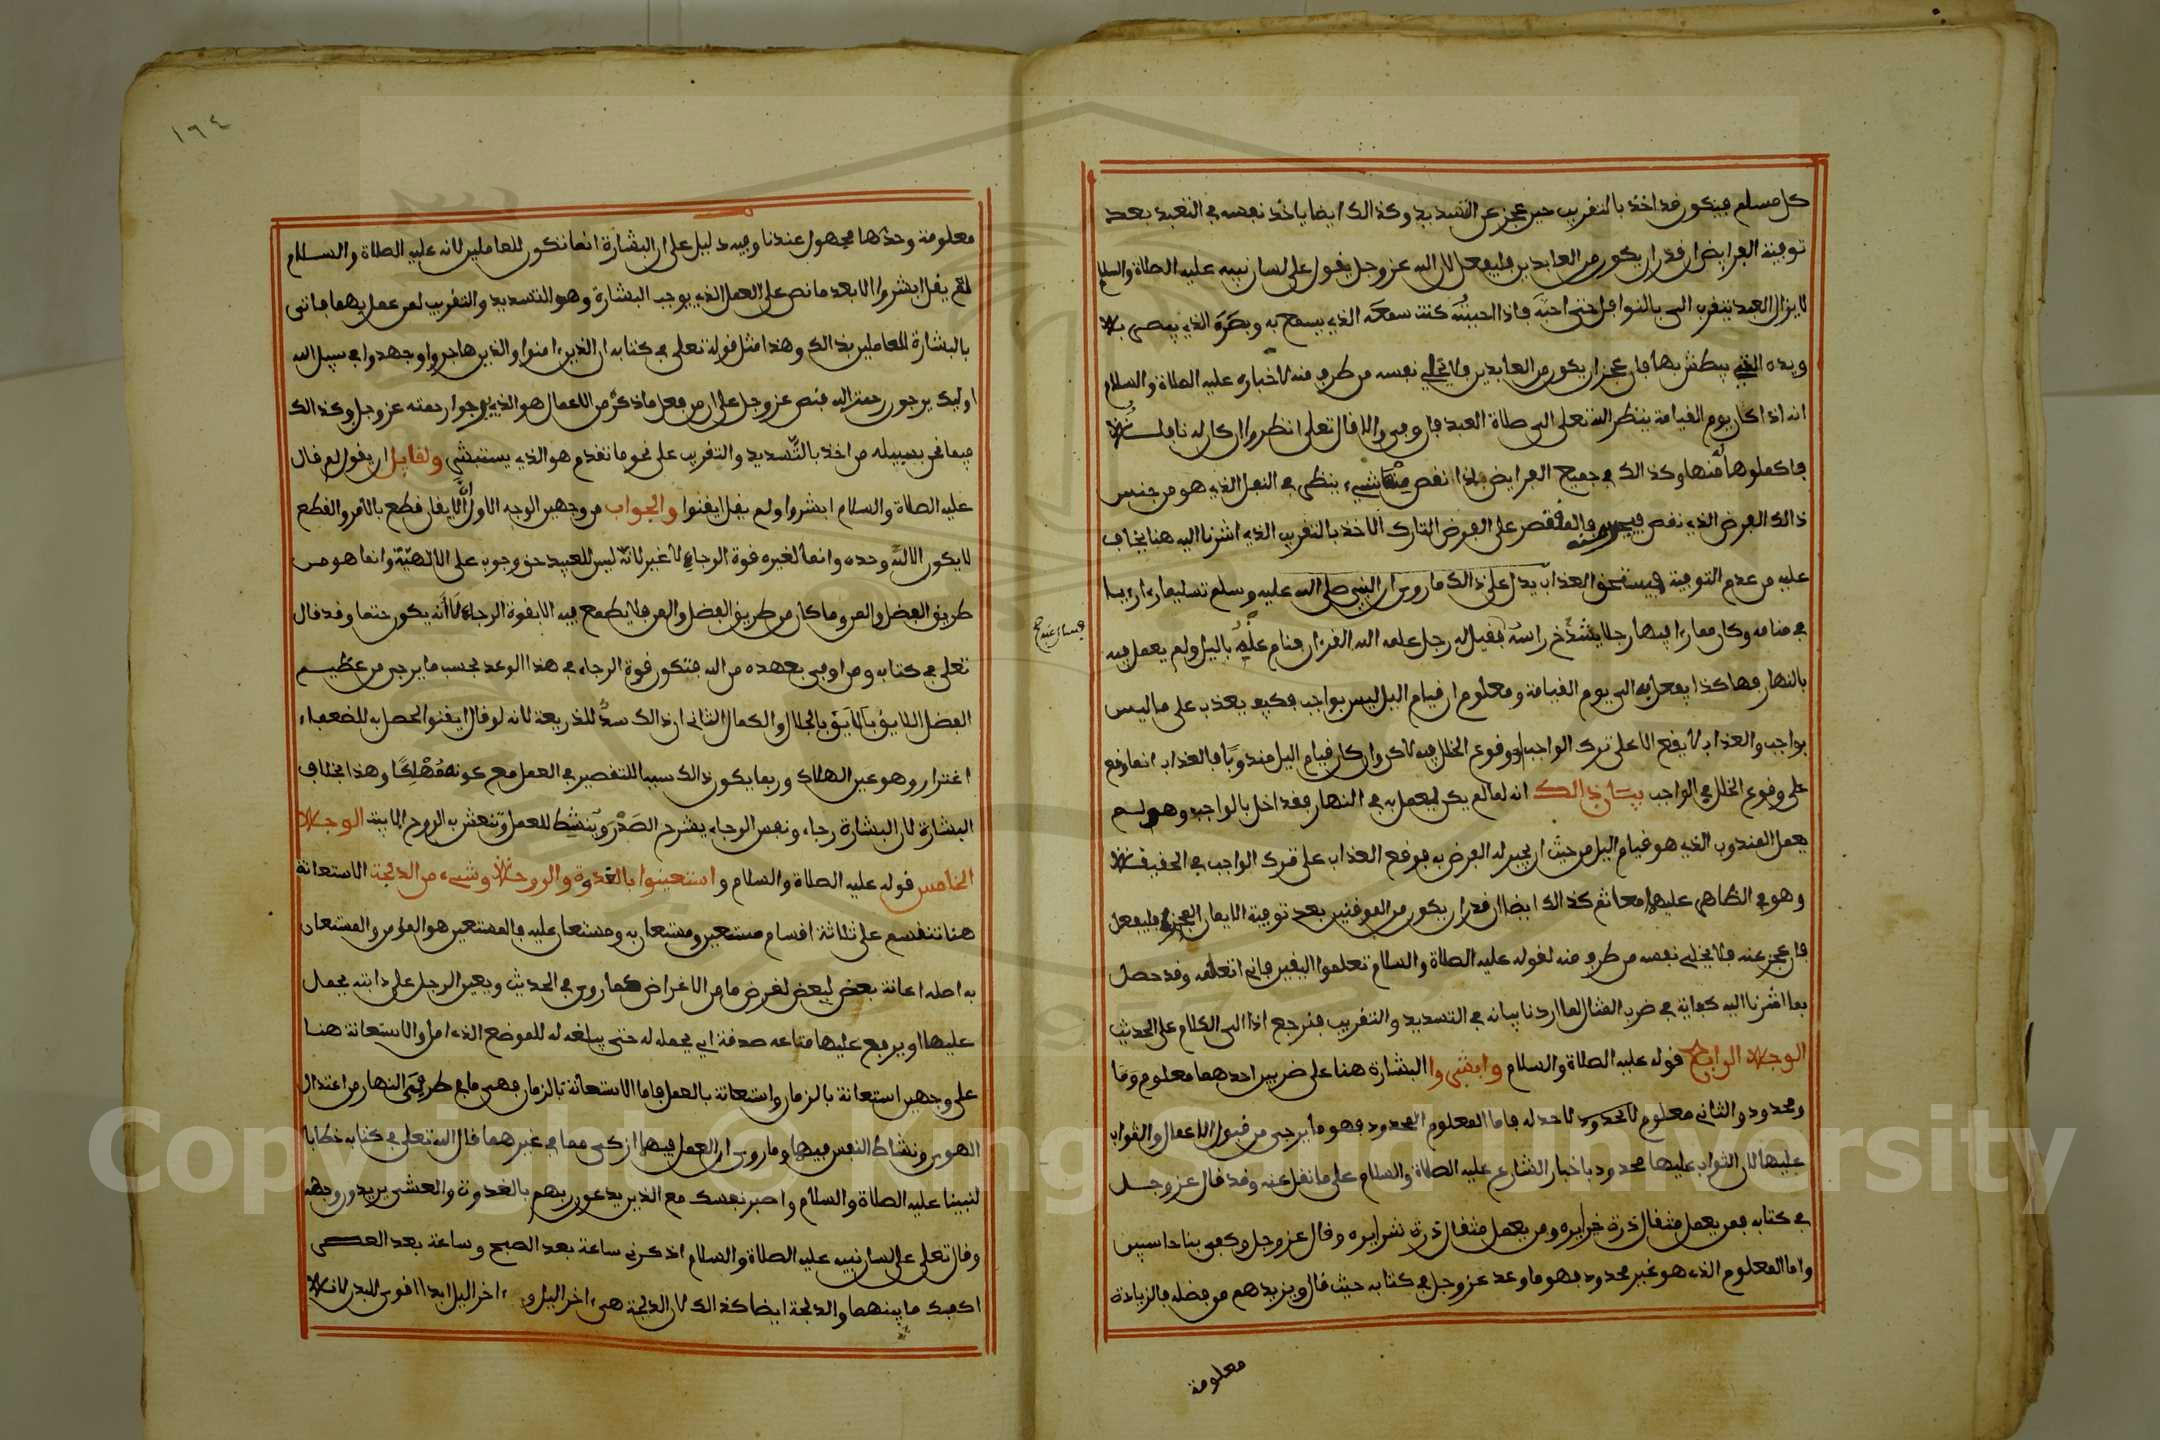 كل مسلم فيكون قد اخذ بالتقريب حين عجز عن التسديد وكذالك ايضا ياخذ نفسه في التعبد بعد
توفية الفرايض ان قدر ان يكون من العابدين فليفعل لان الله عز وجل يقول على لسان نبيه عليه الصلاة والسلام
لا يزال العبد يتقرب الي بالنوافل حتى احبه فاذا احببته كنت سمعه الذي يسمع به وبصره الذي يبصر به
ويده التي يبطش بها فان عجز ان يكون من العابدين فلا يخلي نفسه من طرف منه لاخباره عليه الصلاة والسلام
انه اذا كان يوم القيامة ينظر الله تعلى الى صلاة العبد فان وفى والا قال تعلى انظروا ان كان له نافلة
فاكملوها منها وكذالك في جميع الفرايض اذا نقص منها شيء ينظر في النفل الذي هو من جنس
ذالك الفرض الذي نقص فيجبر منه والمقتصر على الفرض التارك الاخذ بالتقريب الذي اشرنا اليه هنا يخاف
عليه من عدم التوفية فيستحق العذاب يدل على ذالك ما روي ان النبي صلى الله عليه وسلم تسليما راى رءيا
في منامه وكان مما راى فيها رجلا يشدخ راسه فقيل له رجل علمه الله القرءان فنام عليه باليل ولم يعمل فيه
بالنهار فهاكذا يفعل به الى يوم القيامة ومعلوم ان قيام اليل ليس بواجب فكيف يعذب على ما ليس
بواجب والعذاب لا يقع الا على ترك الواجب او وقوع الخلل فيه لاكن وان كان قيام اليل مندوبا فالعذاب انما وقع
على وقوع الخلل في الواجب بيان ذالك انه لما لم يكن ليعمل به في النهار فقد اخل بالواجب وهو لم
يعمل المندوب الذي هو قيام اليل من حيث ان يجبر له الفرض به فوقع العذاب على ترك الواجب في الحقيقة
وهو في الظاهر عليهما معا ثم كذالك ايضا ان قدر ان يكون من الموقنين بعد توفية الايمان فليفعل
فان عجز عنه فلا يخلي نفسه من طرف منه لقوله عليه الصلاة والسلام تعلموا اليقين فاني اتعلمه وقد حصل
بما اشرنا اليه كفاية في ضرب المثال لما اردنا بيانه في التسديد والتقريب فنرجع اذا الى الكلام على الحديث
الوجه الرابع قوله عليه الصلاة والسلام وابشروا البشارة هنا على ضربين احدهما معلوم وما
ومحدود والثاني معلوم لا محدود لا حد له فاما المعلوم المحدود فهو ما يرجى من قبول الاعمال والثواب
عليها لان الثواب عليها محدود باخبار الشارع عليه الصلاة والسلام على ما نقل عنه وقد قال عز وجل
في كتابه فمن يعمل مثقال ذرة خيرا يره ومن يعمل مثقال ذرة شرا يره وقال عز وجل وكفى بنا حاسبين
واما المعلوم الذي هو غير محدود فهو ما وعد عز وجل في كتابه حيث قال ويزيدهم من فضله فالزيادة
معلومة
١٦٤
معلومة وحدها مجهول عندنا وفيه دليل على ان البشارة انما تكون للعاملين لانه عليه الصلاة والسلام
لم يقل ابشروا الا بعد ما نص على العمل الذي يوجب البشارة وهو التسديد والتقريب لمن عمل بهما فاتى
بالبشارة للعاملين بذالك وهذا مثل قوله تعلى في كتابه ان الذين ءامنوا والذين هاجروا وجهدوا في سبيل الله
اوليك يرجون رحمت الله فنص عز وجل على ان من فعل ما ذكر من الاعمال هو الذي يرجوا رحمته عز وجل وكذالك
فيما نحن بسبيله من اخذ بالتسديد والتقريب على نحو ما تقدم هو الذي يستبشر ولقايل ان يقول لم قال
عليه الصلاة والسلام ابشروا ولم يقل ايقنوا والجواب من وجهين الوجه الاول ان الايقان قطع بالامر والقطع
لا يكون الا لله وحده وانما لغيره قوة الرجاء لا غير لانه ليس للعبيد حق وجوب على الالهية وانما هو من
طريق الفضل والمن وما كان من طريق الفضل والمن فلا يطمع فيه الا بقوة الرجاء لا انه يكون حتما وقد قال
تعلى في كتابه ومن اوفى بعهده من الله فتكون قوة الرجاء في هذا الوعد بحسب ما يرجى من عظيم
الفضل اللايق بالجلال والكمال الثاني ان ذالك سد للذريعة لانه لو قال ايقنوا لحصل به للضعفاء
اغترار وهو عين الهلاك وربما يكون ذالك سببا للتقصير في العمل مع كونه مهلكا وهذا بخلاف
البشارة لان البشارة رجاء ونفس الرجاء يشرح الصدر وينشط للعمل وتنتعش به الروح الوجه
الخامس قوله عليه الصلاة والسلام واستعينوا بالغدوة والروحة وشيء من الدلجة الاستعانة
هنا تنقسم على ثلاثة اقسام مستعين ومستعان به ومستعان عليه فالمستعين هو المؤمن والمستعان
به اصله اعانة بعض لبعض لغرض ما من الاغراض كما روي في الحديث ويعين الرجل على دابته يحمل
عليها او يرفع عليها متاعه صدقة اي يحمله له حتى يبلغه له للموضع الذي امل والاستعانة هنا
على وجهين استعانة بالزمان واستعانة بالعمل فاما الاستعانة بالزمان فهي ما في طرفي النهار من اعتدال
الهوى ونشاط النفس فيها وما روي ان العمل فيها ازكى مما في غيرهما قال الله تعلى في كتابه خطابا
لنبينا عليه الصلاة والسلام واصبر نفسك مع الذين يدعون ربهم بالغدوة والعشي يريدون وجهه
وقال تعلى على لسان نبيه عليه الصلاة والسلام اذكرني ساعة بعد الصبح وساعة بعد العصر
اكفك ما بينهما والدلجة ايضا كذالك لان الدلجة هي ءاخر اليل و ءاخر اليل ابدا اقوى للبدن لانه
Copyright © King Saud University